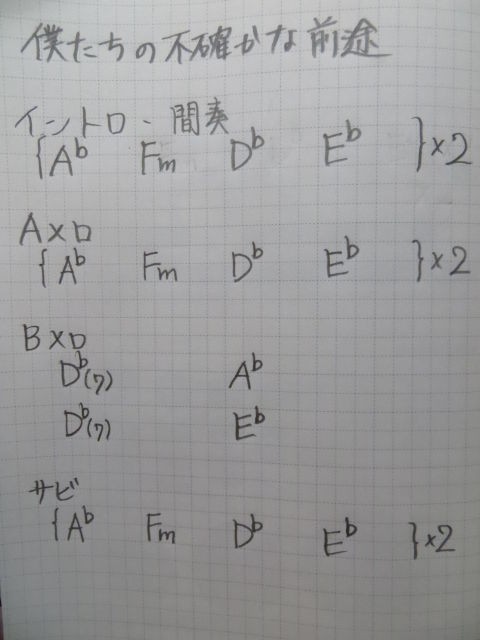 僕たちの不確かな前途
イントロ・間奏
{A♭ Fm D♭ E♭ }×2
Aメロ
{A♭ Fm D♭ E♭ }×2
Bメロ
D♭(7) A♭
D♭(7) E♭
サビ
{A♭ Fm D♭ E♭ }×2